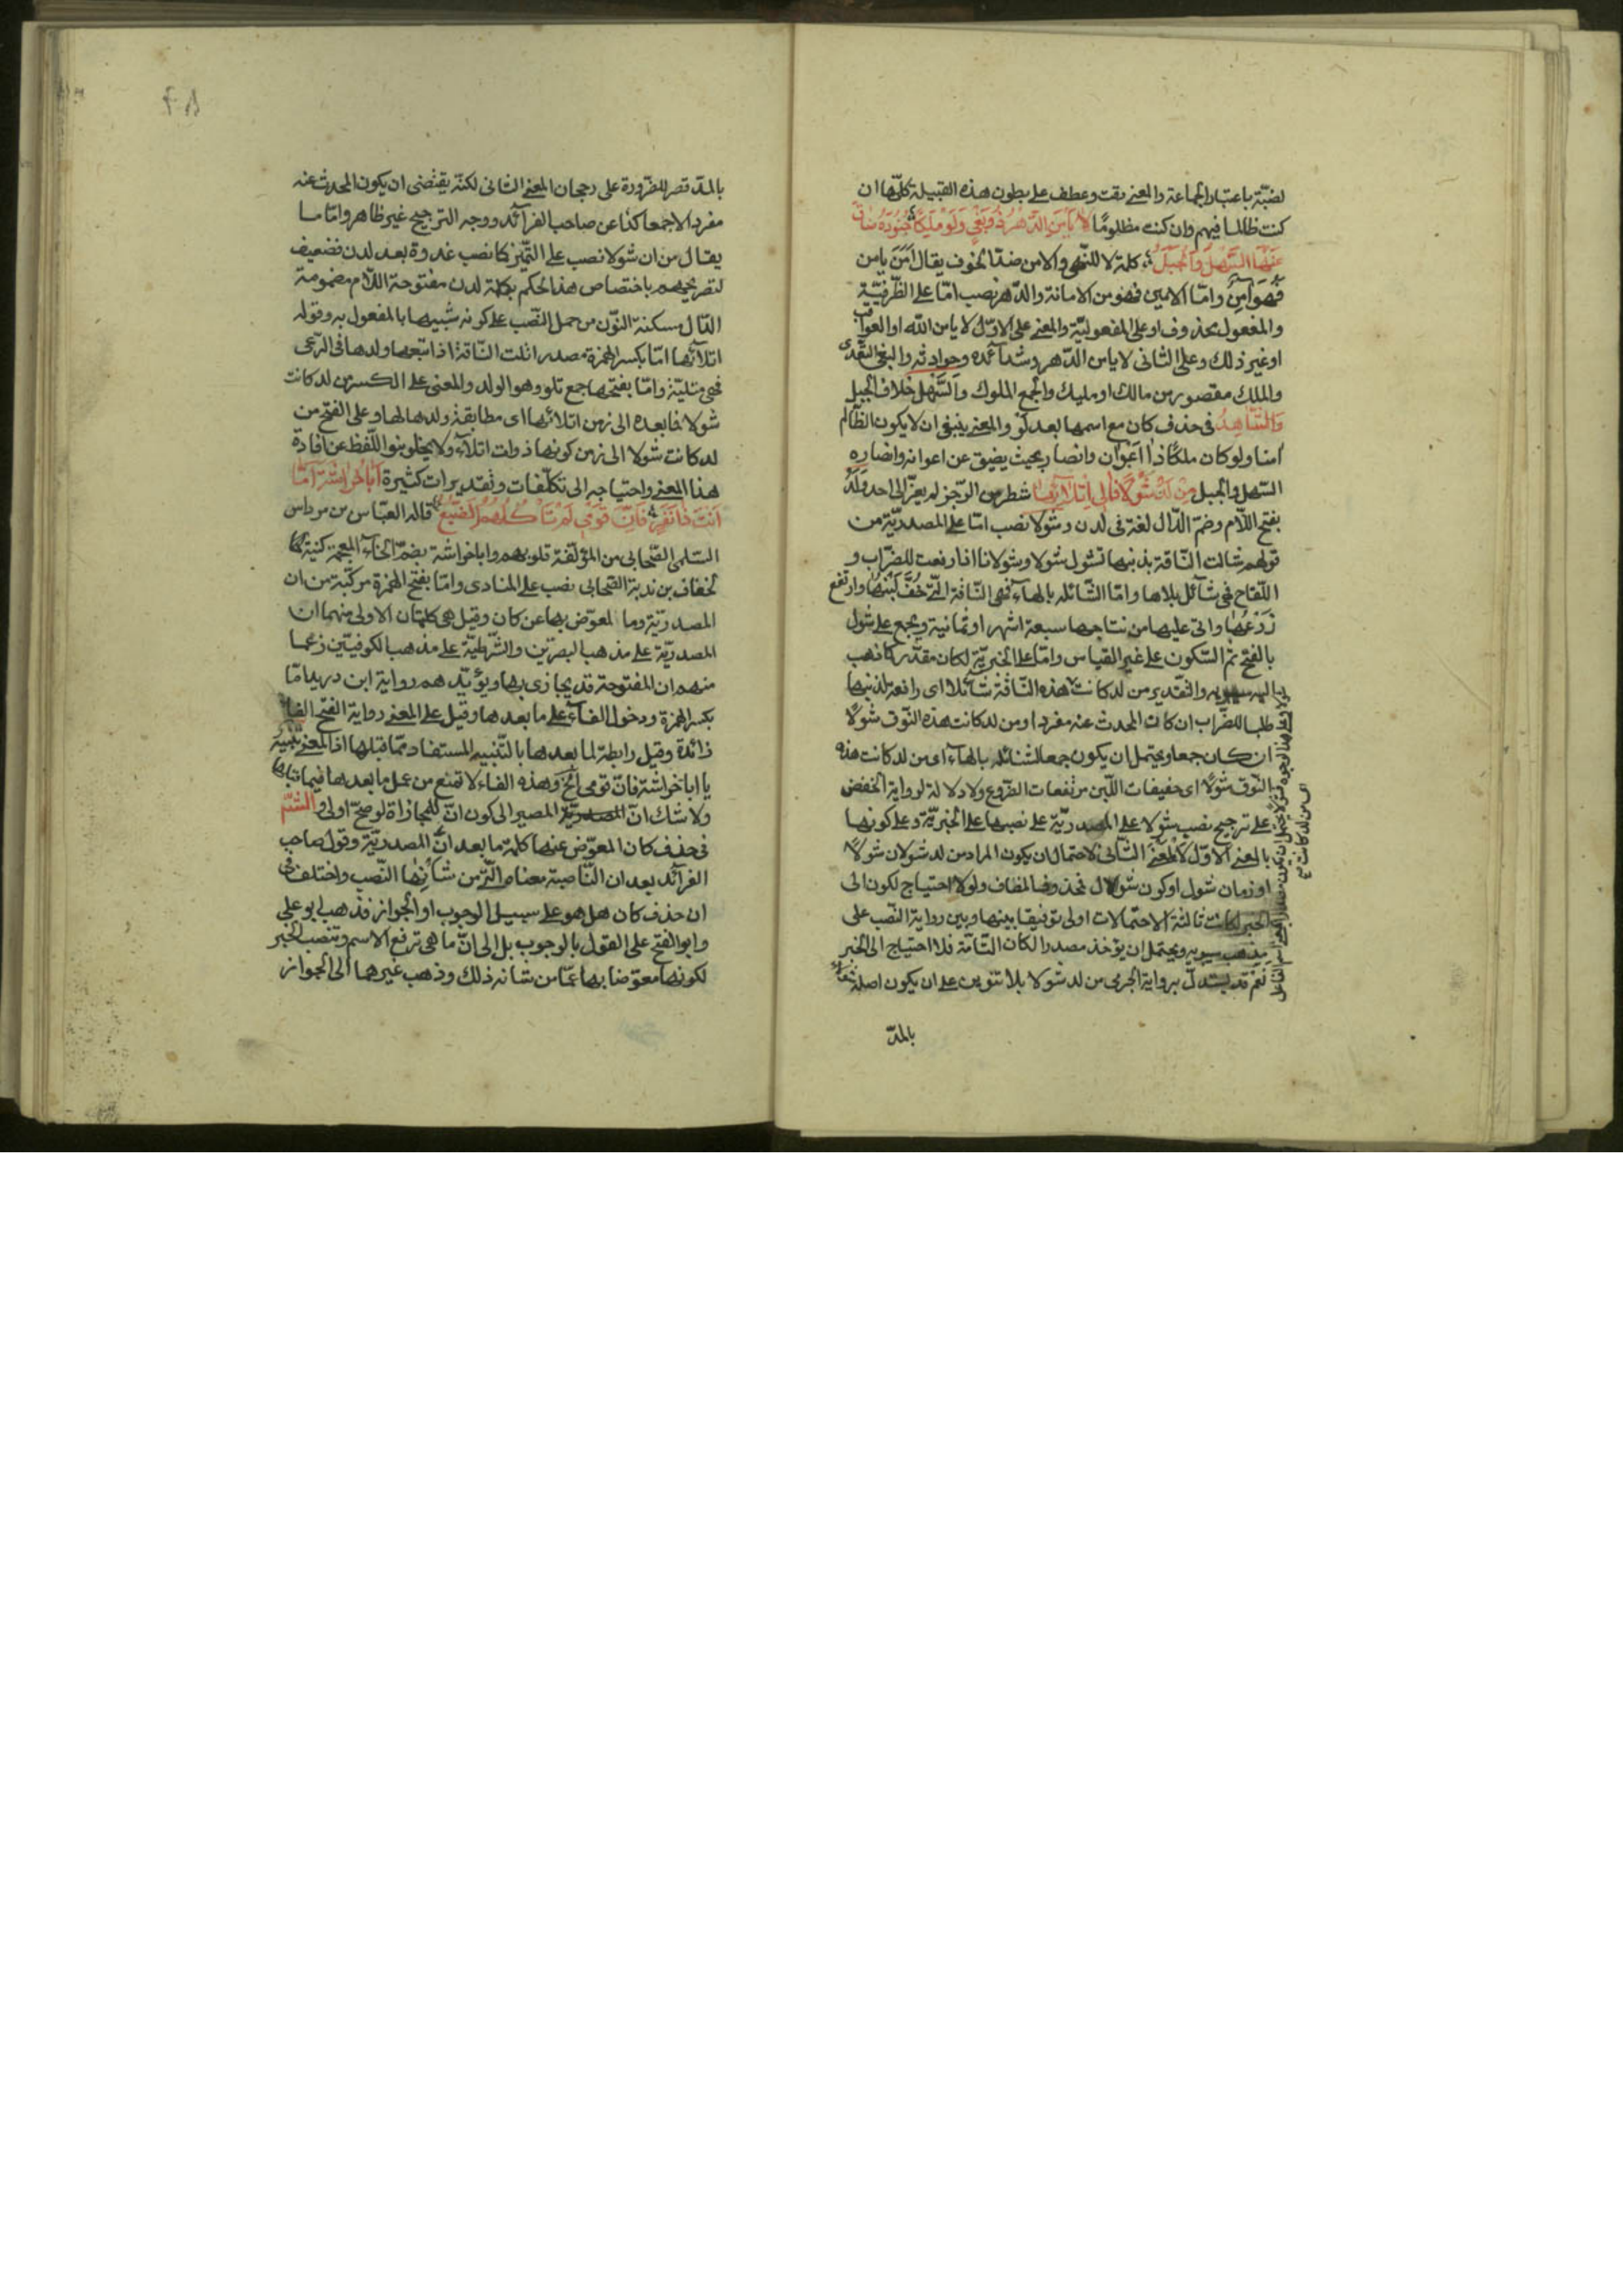 لضبّة باعتبار الجماعة والمعنى دفت وعطف على بطون هذه القبيلة كلّها ان
كنت ظالما فيهم وان كنت مظلومًا لا يَأمَنِ الدَّهْرَ ذُو بَغْيٍ وَلَوْ مَلِكًا جُنُودُهُ ضَاقَ
عَنْهَا السَّهْلُ وَالْجَبَلُ كلمة لا للنّهى والامن ضدّ الخوف يقال اَمِنَ يامن
فَهُوَ آمِنٌ وامّا الامين فهو من الامانة والدّهر نصب امّا على الظّرفيّة
والمفعول محذوف او على المفعوليّة والمعنى على الاوّل لا يامن الله او العواقب
او غير ذلك وعلى الثانى لا يامن الدّهر وشدآئده وحوادثه والبغى التّعدّى
والملك مقصور من مالك او مليك والجمع الملوك وَالسَّهْل خلاف الجبل
وَالشَّاهِدُ فى حذف كان مع اسمها بعد لَوْ والمعنى ينبغى ان لا يكون الظّالم
امنا ولو كان ملكًا ذا اَعْوَان وانصار بحيث يضيق عن اعوانه وانصاره
السّهل والجبل مِنْ لَدُ شَوْلًا فَاِلَى اِتْلَائِهَا شطر من الرّجز لم يعز الى احد وَلَدُ
بفتح اللّام وضمّ الدّال لغة فى لدن وشولا نصب امّا على المصدريّة من
قولهم شالت النّاقة بذنبها تشول شولا وشولانا اذا رفعت للضّراب و
اللّقاح فهى شآئل بلاها وامّا الشّائله بالهآء فهى النّاقة الّتى خَفَّ لَبَنُهَا وارتفع
ضَرْعُهَا واتى عليها من نتاجها سبعة اشهر او ثمانية ويجمع على شول
بالفتح ثم السّكون على غير القياس وامّا على الخبريّة لكان مقدّر كا ذهب
اليه سيبويه والتّقدير من لد كانت هذه النّاقة شائلا اى رافعة لذنبها
طلبا للضّراب ان كان المحدث عنه مفردا ومن لد كانت هذه النّوق شَولًا
ان كان جمعا ويحتمل ان يكون جمعا لشائله بالهآء اى من لد كانت هذه
النّوق شولًا اى خفيفات اللّبن مرتفعات الضّروع ولا دلالة لرواية الخفض
على ترجيح نصب شولا على المصدريّة على نصبها على الخبريّة وعلى كونها
بالمعنى الاوّل لا المعنى الثّانى لاحتمال ان يكون المراد من لد شولان شولًا
او زمان شول او كون شول فحذف المضاف ولو لا احتياج لكون الى
الخبر لكانت ثالثة الاحتمالات اولى توفيقا بينها وبين رواية النّصب على
مذهب سيبويه ويحتمل ان يؤخذ مصدرا لكان التّامّة فلا احتياج الى الخبر
نعم قد يستدلّ برواية الجرمى من لد شولا بلا تنوين على ان يكون اصله شولآء
بالمدّ
بالمدّ قصر للضّرورة على رجحان المعنى الثّانى لكنّه يقتضى ان يكون المحدث عنه
مفردا لا جمعا كذا عن صاحب الفرآئد ووجه التّرجيح غير ظاهر وامّا ما
يقال من ان شولا نصب على التّميز كا نصب غدوة بعد لدن فضعيف
لتصريحهم باختصاص هذا الحكم بكلمة لدن مفتوحة اللّام مضمومة
الدّال مسكنة النّون من حمل النّصب على كونه شبيها بالمفعول به وقوله
اتلآئها امّا بكسر الهمزة مصدر اتلت النّاقة اذا اتبعها ولدها فى الرّعى
فهى متلية وامّا بفتحها جمع تلو وهو الولد والمعنى على الكسر من لد كانت
شولا فما بعده الى زمن اتلائها اى مطابقة ولدها لها وعلى الفتح من
لد كانت شولا الى زمن كونها ذوات اتلآء ولا يخلو بنو اللّفظ عن افادة
هذا المعنى واحتياجه الى تكلّفات وتقديرات كثيرة اَبَا خُرَاشَةَ اَمَّا
اَنْتَ ذَا نَفَرٍ فَاِنَّ قَوْمِىَ لَمْ تَأْكُلْهُمُ الضَّبُعُ قاله العبّاس من مرداس
السّلمى الصّحابى من المؤلّفة قلوبهم وابا خراشة بضمّ الخآء المعجمة كنية
لخفاف بن ندبة الصّحابى نصب على المنادى وامّا بفتح الهمزة مركّبة من ان
المصدريّة وما المعوّض بها عن كان وقيل هى كلمتان الاولى منهما ان
المصدريّة على مذهب البصريّين والشّرطيّة على مذهب الكوفيّين زعما
منهم ان المفتوحة قد يجازى بها ويؤيّدهم رواية ابن دريد امّا
بكسر الهمزة ودخول الفآء على ما بعدها وقيل على المعنى رواية الفتح الفآء
زائدة وقيل رابطة لما بعدها بالتّنبيه المستفاد ممّا قبلها اذ المعنى تنبّه
يا ابا خراشة فانّ قومى الخ وهذه الفاء لا تمنع من عمل ما بعدها فيما قبلها
ولا شك انّ المصير الى كون انّ للمجازاة لوضحّ اولى والشّاهد
فى حذف كان المعوّض عنها كلمة ما بعد ان المصدريّة وقول صاحب
الفرآئد بعد ان النّاصبة معناه الّتى من شأنها النّصب واختلف فى
ان حذف كان هل هو على سبيل الوجوب او الجواز فذهب ابو على
وابو الفتح على القول بالوجوب بل الى انّ ما هى ترفع الاسم وتنصب الخبر
لكونها معوّضا بها عمّا من شانه ذلك وذهب غيرهما الى الجواز